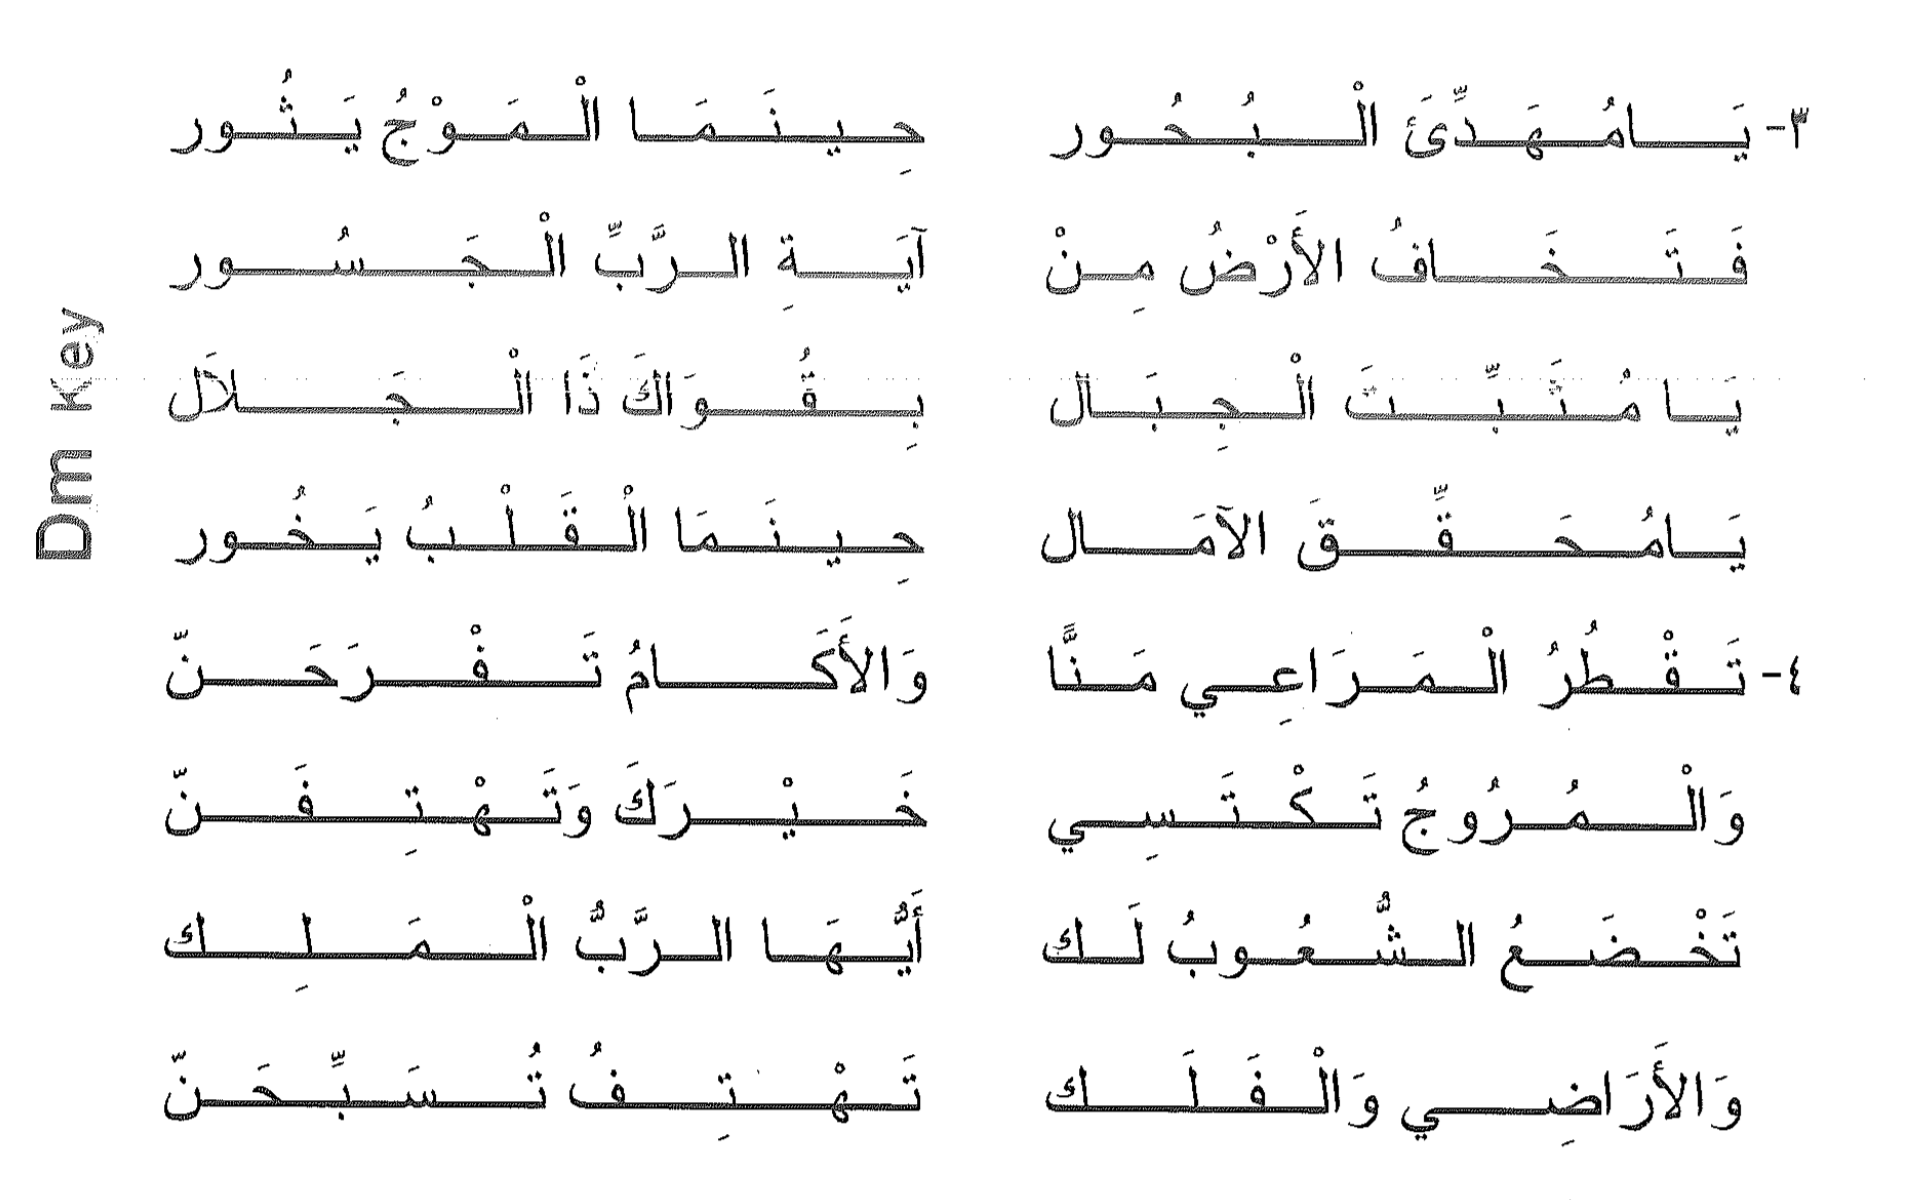 ٣- يَامُهَدِّئَ الْبُحُور حِينَمَا الْمَوْجُ يَثُور
فَتَخَافُ الأَرْضُ مِنْ آيَةِ الرَّبِّ الْجَسُور
يَا مُثَبِّتَ الْجِبَال بِقُوَاكَ ذَا الْجَلاَل
يَامُحَقِّقَ الآمَال حِينَمَا الْقَلْبُ يَخُور
٤- تَقْطُرُ الْمَرَاعِي مَنًّا وَالأَكَامُ تَفْرَحَنّ
وَالْمُرُوجُ تَكْتَسِي خَيْرَكَ وَتَهْتِفَنّ
تَخْضَعُ الشُّعُوبُ لَك أَيُّهَا الرَّبُّ الْمَلِك
وَالأَرَاضِي وَالْفَلَك تَهْتِفُ تُسَبِّحَنّ
Dm Key